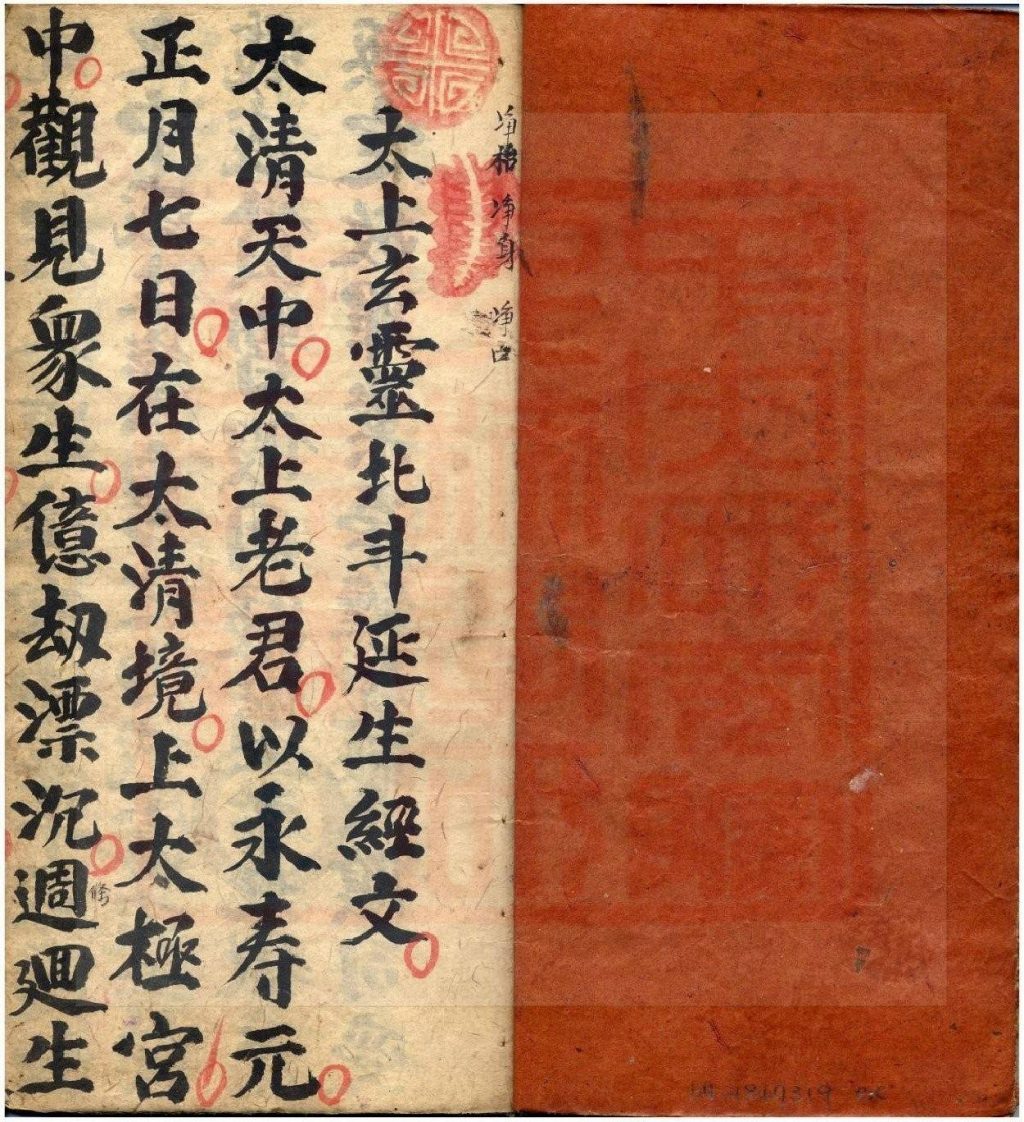 净身 净口
太上玄靈北斗延生經文
太清天中太上老君以永寿元
正月七日在太清境上太極宮
中觀見衆生億劫漂沉週廻生